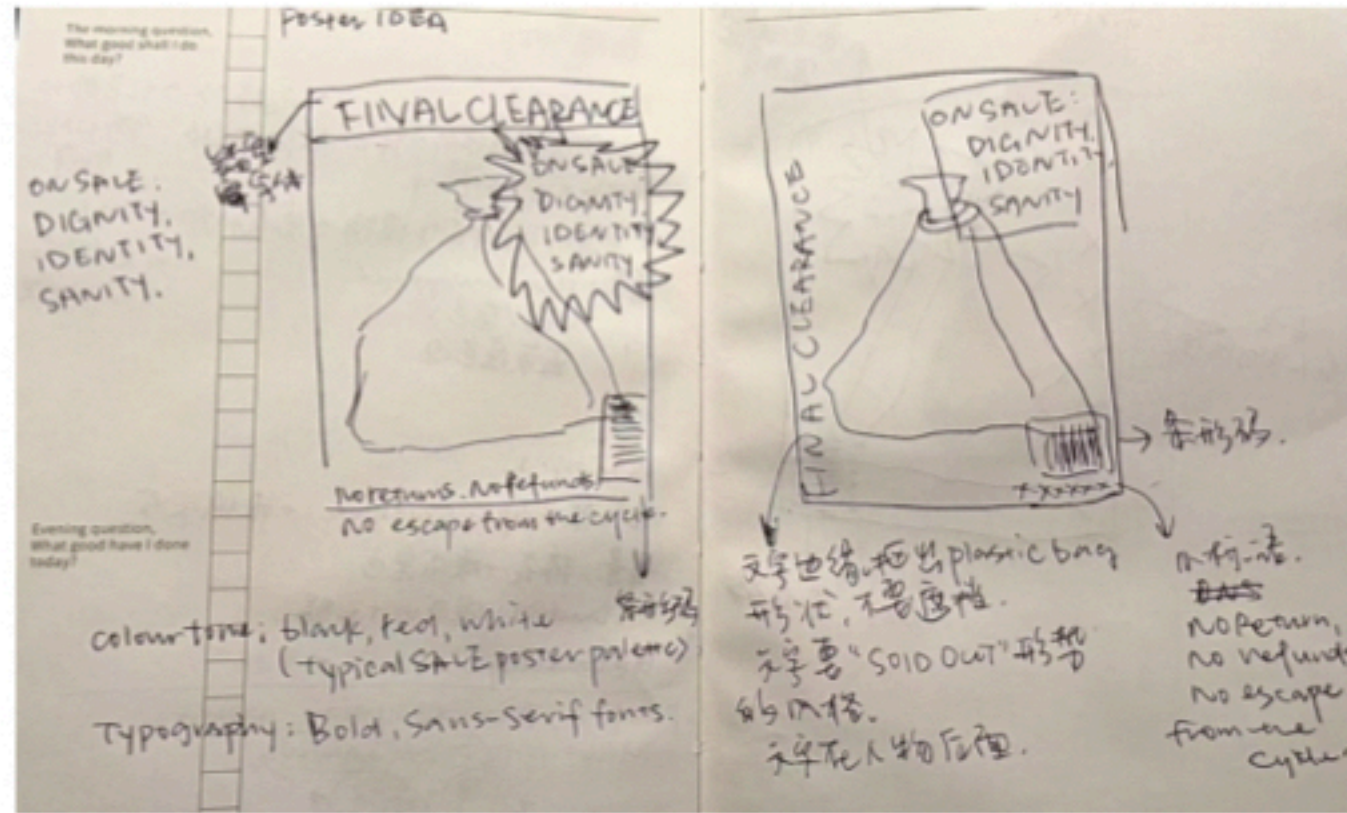 The morning question,
What good shall I do
this day?
Poster IDEA
FINAL CLEARANCE
ON SALE.
DIGNITY.
IDENTITY,
SANITY.
ON SALE
DIGNITY
IDENTITY
SANITY
No returns. No Refunds.
No escape from the cycle.
条形码
Evening question,
What good have I done
today?
Colour tone: black, red, white
(typical SALE poster palette)
Typography: Bold, Sans-Serif fonts.
FINAL CLEARANCE
ON SALE:
DIGNITY.
IDENTITY.
SANITY
条形码.
xxxxxx
文字边缘 plastic bag
形状,不要遮挡.
文字要"SOLD OUT"形势
的风格.
文字在人物后面.
No Return,
No refund
No escape
from the
cycle